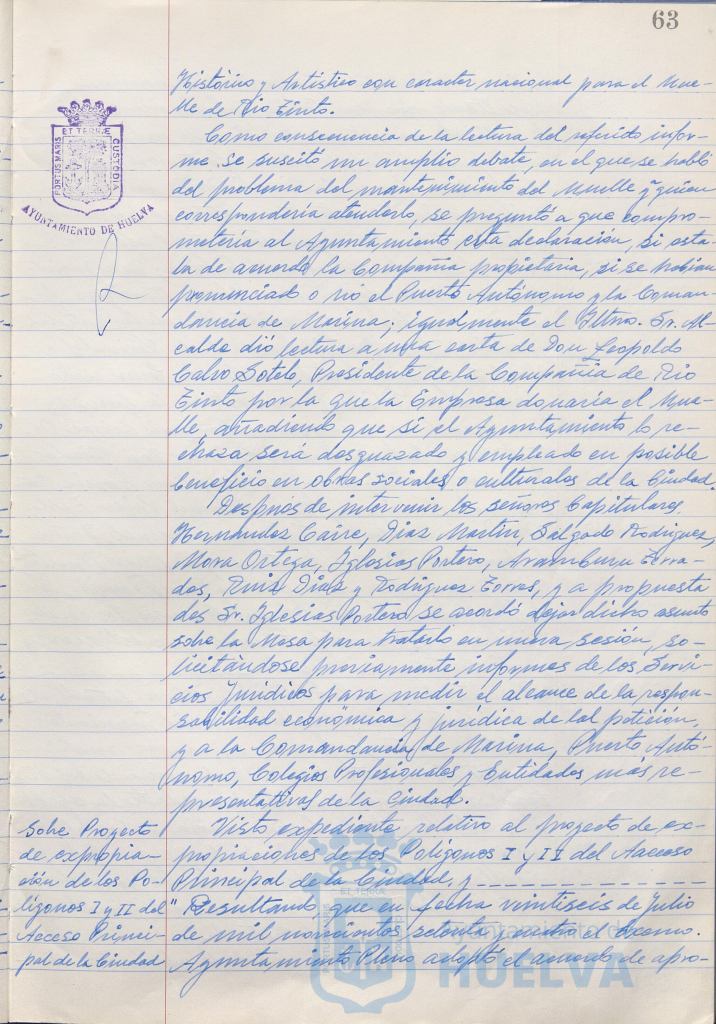 63
Histórico y Artístico con caracter nacional para el Mue-
lle de Rio Tinto.
Como consecuencia de la lectura del referido infor-
me se suscitó un amplio debate, en el que se habló
del problema del mantenimiento del Muelle y a quien
correspondería atenderlo, se preguntó a que compro-
metería al Ayuntamiento esta declaración, si esta-
ba de acuerdo la Compañia propietaria, si se habian
pronunciado o nó el Puerto Autónomo y la Coman-
dancia de Marina; igualmente el Iltmo. Sr. Al-
calde dió lectura a una carta de Don Leopoldo
Calvo Sotelo, Presidente de la Compañía de Rio
Tinto por la que la Empresa donaría el Mue-
lle, añadiendo que si el Ayuntamiento lo re-
chaza será desguazado y empleado en posible
beneficio en obras sociales o culturales de la Ciudad.
Después de intervenir los señores Capitulares
Hernandez Caire, Diaz Martin, Salgado Rodriguez,
Mora Ortega, Iglesias Portero, Aramburu Terra-
des, Ruiz Diaz y Rodriguez Torres, y a propuesta
del Sr. Iglesias Portero se acordó dejar dicho asunto
sobre la Mesa para tratarlo en nueva sesión, so-
licitándose previamente informes de los Servi-
cios Jurídicos para medir el alcance de la respon-
sabilidad económica y jurídica de tal petición,
y a la Comandancia de Marina, Puerto Autó-
nomo, Colegios Profesionales y Entidades más re-
presentativas de la Ciudad.
Sobre Proyecto
de expropia-
ción de los Po-
lígonos I y II del
Acceso Princi-
pal de la Ciudad
Visto expediente relativo al proyecto de ex-
propiaciones de los Polígonos I y II del Acceso
Principal de la Ciudad, y
"Resultando que en fecha veintiseis de Julio
de mil novecientos setenta y cuatro el Excmo.
Ayuntamiento Pleno adoptó el acuerdo de apro-
PORTUS MARIS
ET TERRÆ
CUSTODIA
AYUNTAMIENTO DE HUELVA
Ayuntamiento de
HUELVA